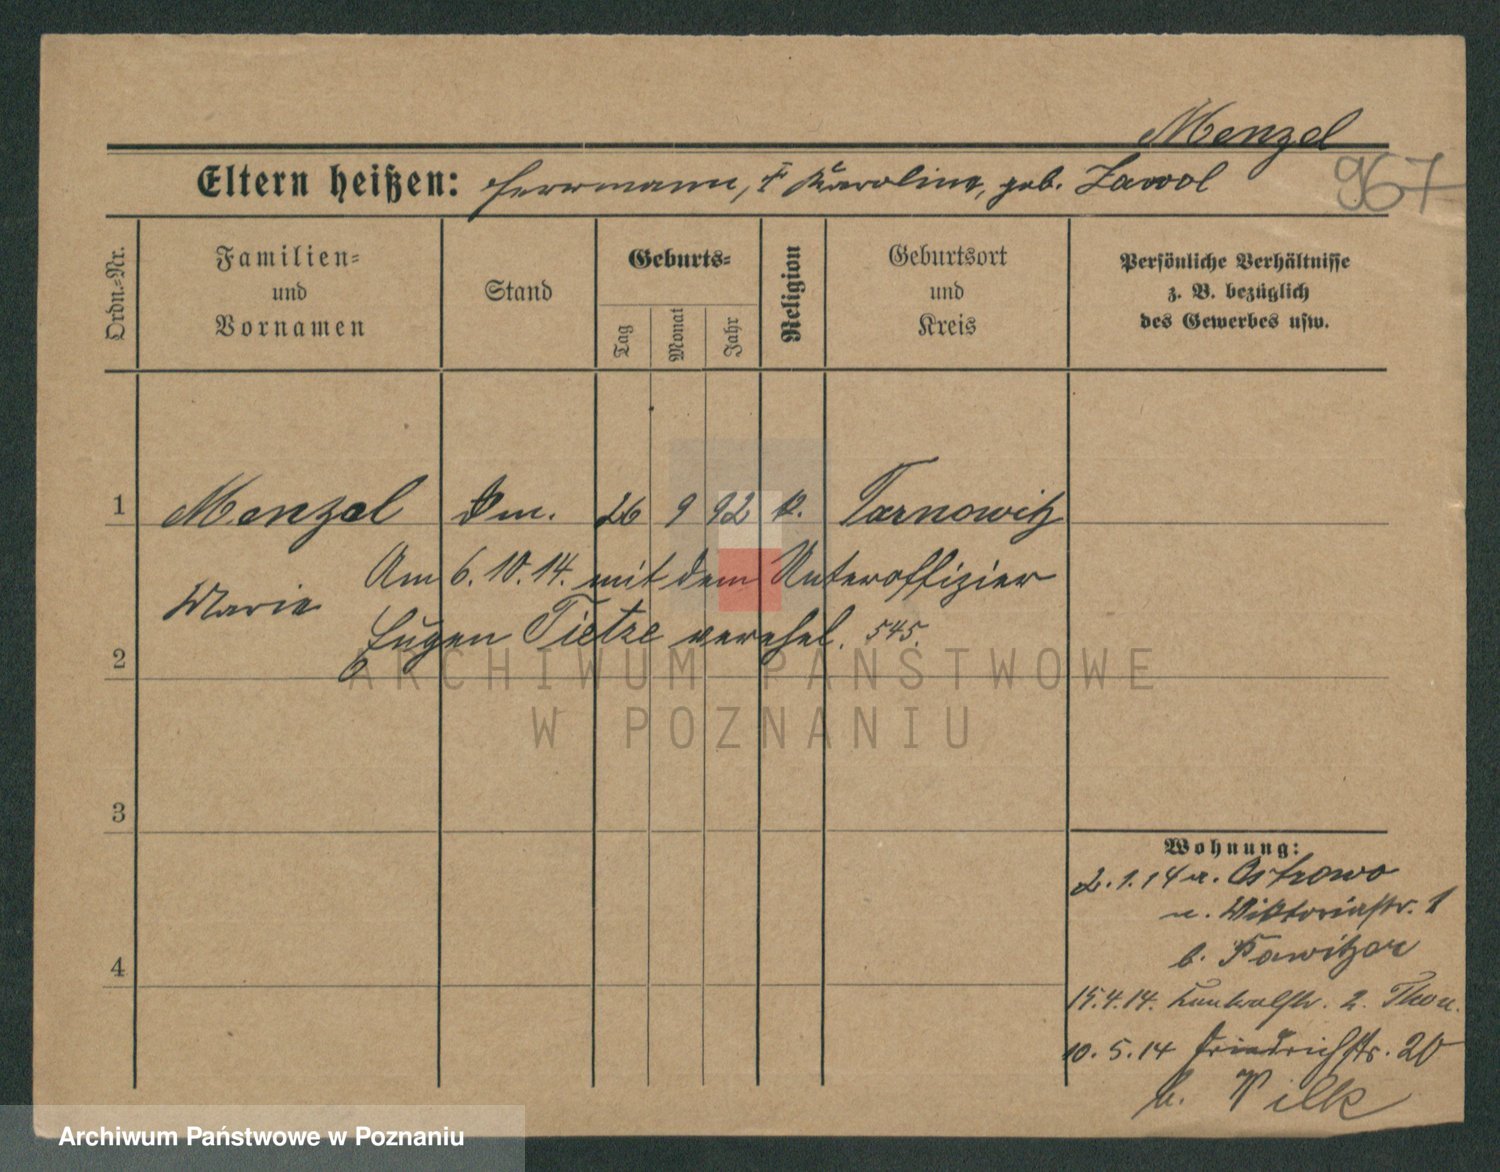 Menzel
967
Eltern heißen: Herrmann, † Karoline, geb. Zawol
Ordn.-Nr.
Familien-
und
Vornamen
Stand
Geburts-
Tag
Monat
Jahr
Religion
Geburtsort
und
Kreis
Persönliche Verhältnisse
z. B. bezüglich
des Gewerbes usw.
1 Menzel 26 9 92 k. Tarnowitz
Am 6.10.14. mit dem Unteroffizier
Marie
Eugen Tietze verehel. 545.
2
ARCHIWUM PAŃSTWOWE
W POZNANIU
3
Wohnung:
2.1.14 Ostrowo
Viktoriastr. 1
b.
4
15.4.14. 2.
10.5.14 Friedrichstr. 20
b. Wilk
Archiwum Państwowe w Poznaniu